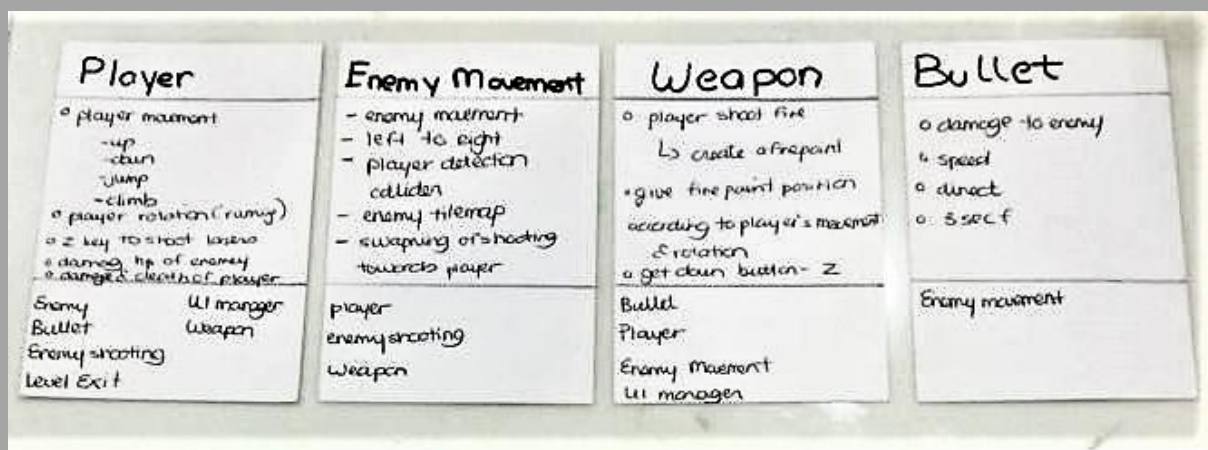 Player
o player movement
-up
-down
-Jump
-climb
o player rotation (
o Z key to shoot lasers
o damag hp of enemey
o damaged death of player
Enemy UI manager
Bullet Weapon
Enemy shooting
Level Exit
Enemy Movement
- enemy movement
- left to eight
- player detection
collider
- enemy tilemap
- swapning of shooting
towards player
player
enemyshooting
Weapon
Weapon
o player shoot fire
↳ create a firepoint
• give firepoint position
according to player's movement
& rotation
o get down button - Z
Bullet
Player
Enemy Movement
UI manager
Bullet
o damage to enemy
speed
o direct
o
Enemy movement